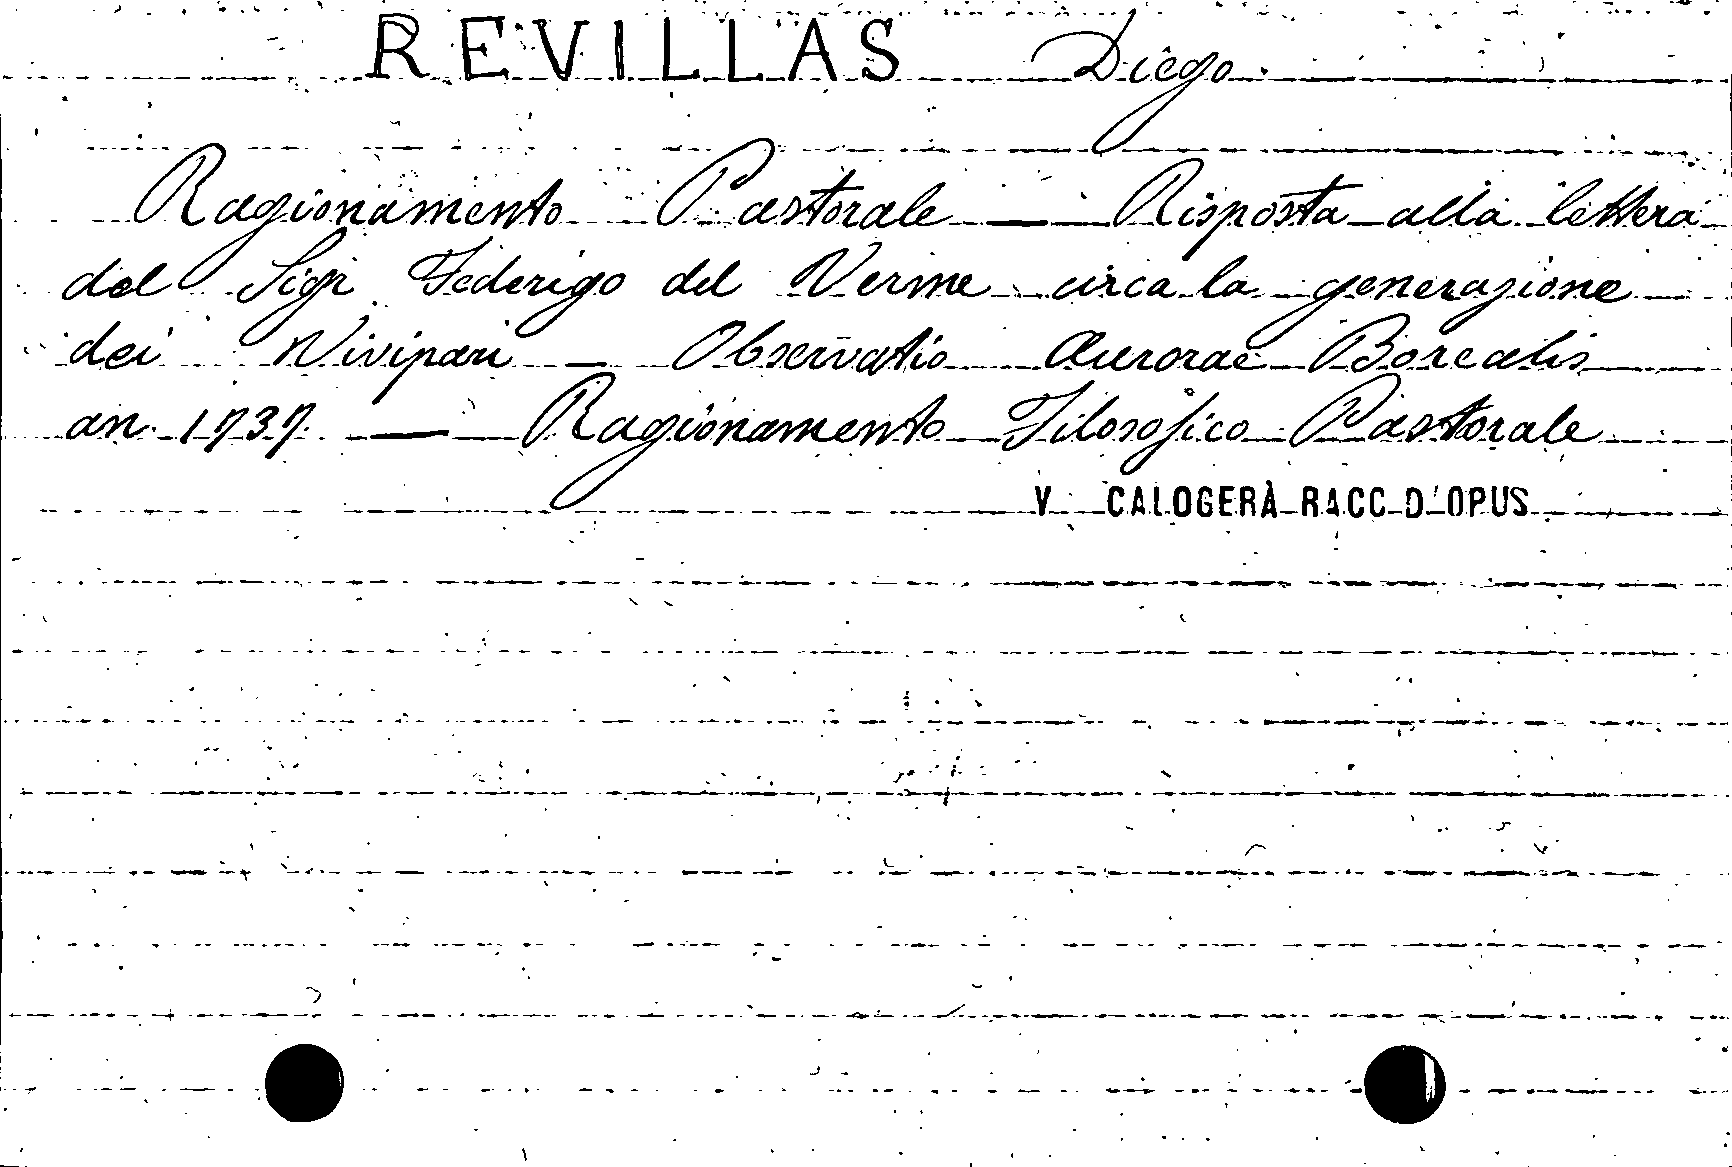 REVILLAS Diego
Ragionamento Pastorale — Risposta alla lettera
del Sigr Federigo del Verme circa la generazione
dei Vivipari — Observatio Aurorae Borealis
an. 1737. — Ragionamento Filosofico Pastorale
V. CALOGERÀ RACC. D'OPUS.